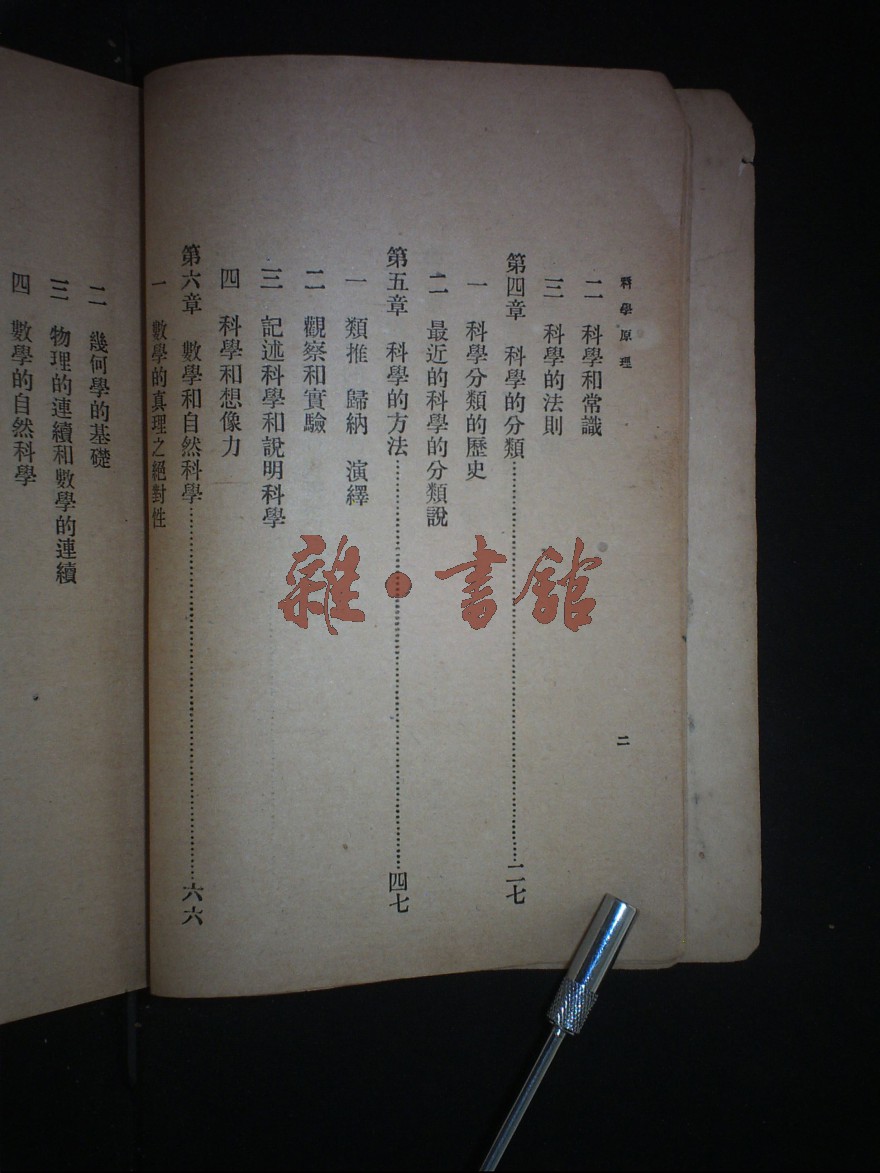 科學原理
二
二 科學和常識
三 科學的法則
第四章 科學的分類……二七
一 科學分類的歷史
二 最近的科學的分類說
第五章 科學的方法……四七
一 類推 歸納 演繹
二 觀察和實驗
三 記述科學和說明科學
四 科學和想像力
第六章 數學和自然科學……六六
一 數學的真理之絕對性
二 幾何學的基礎
三 物理的連續和數學的連續
四 數學的自然科學
雜·書館